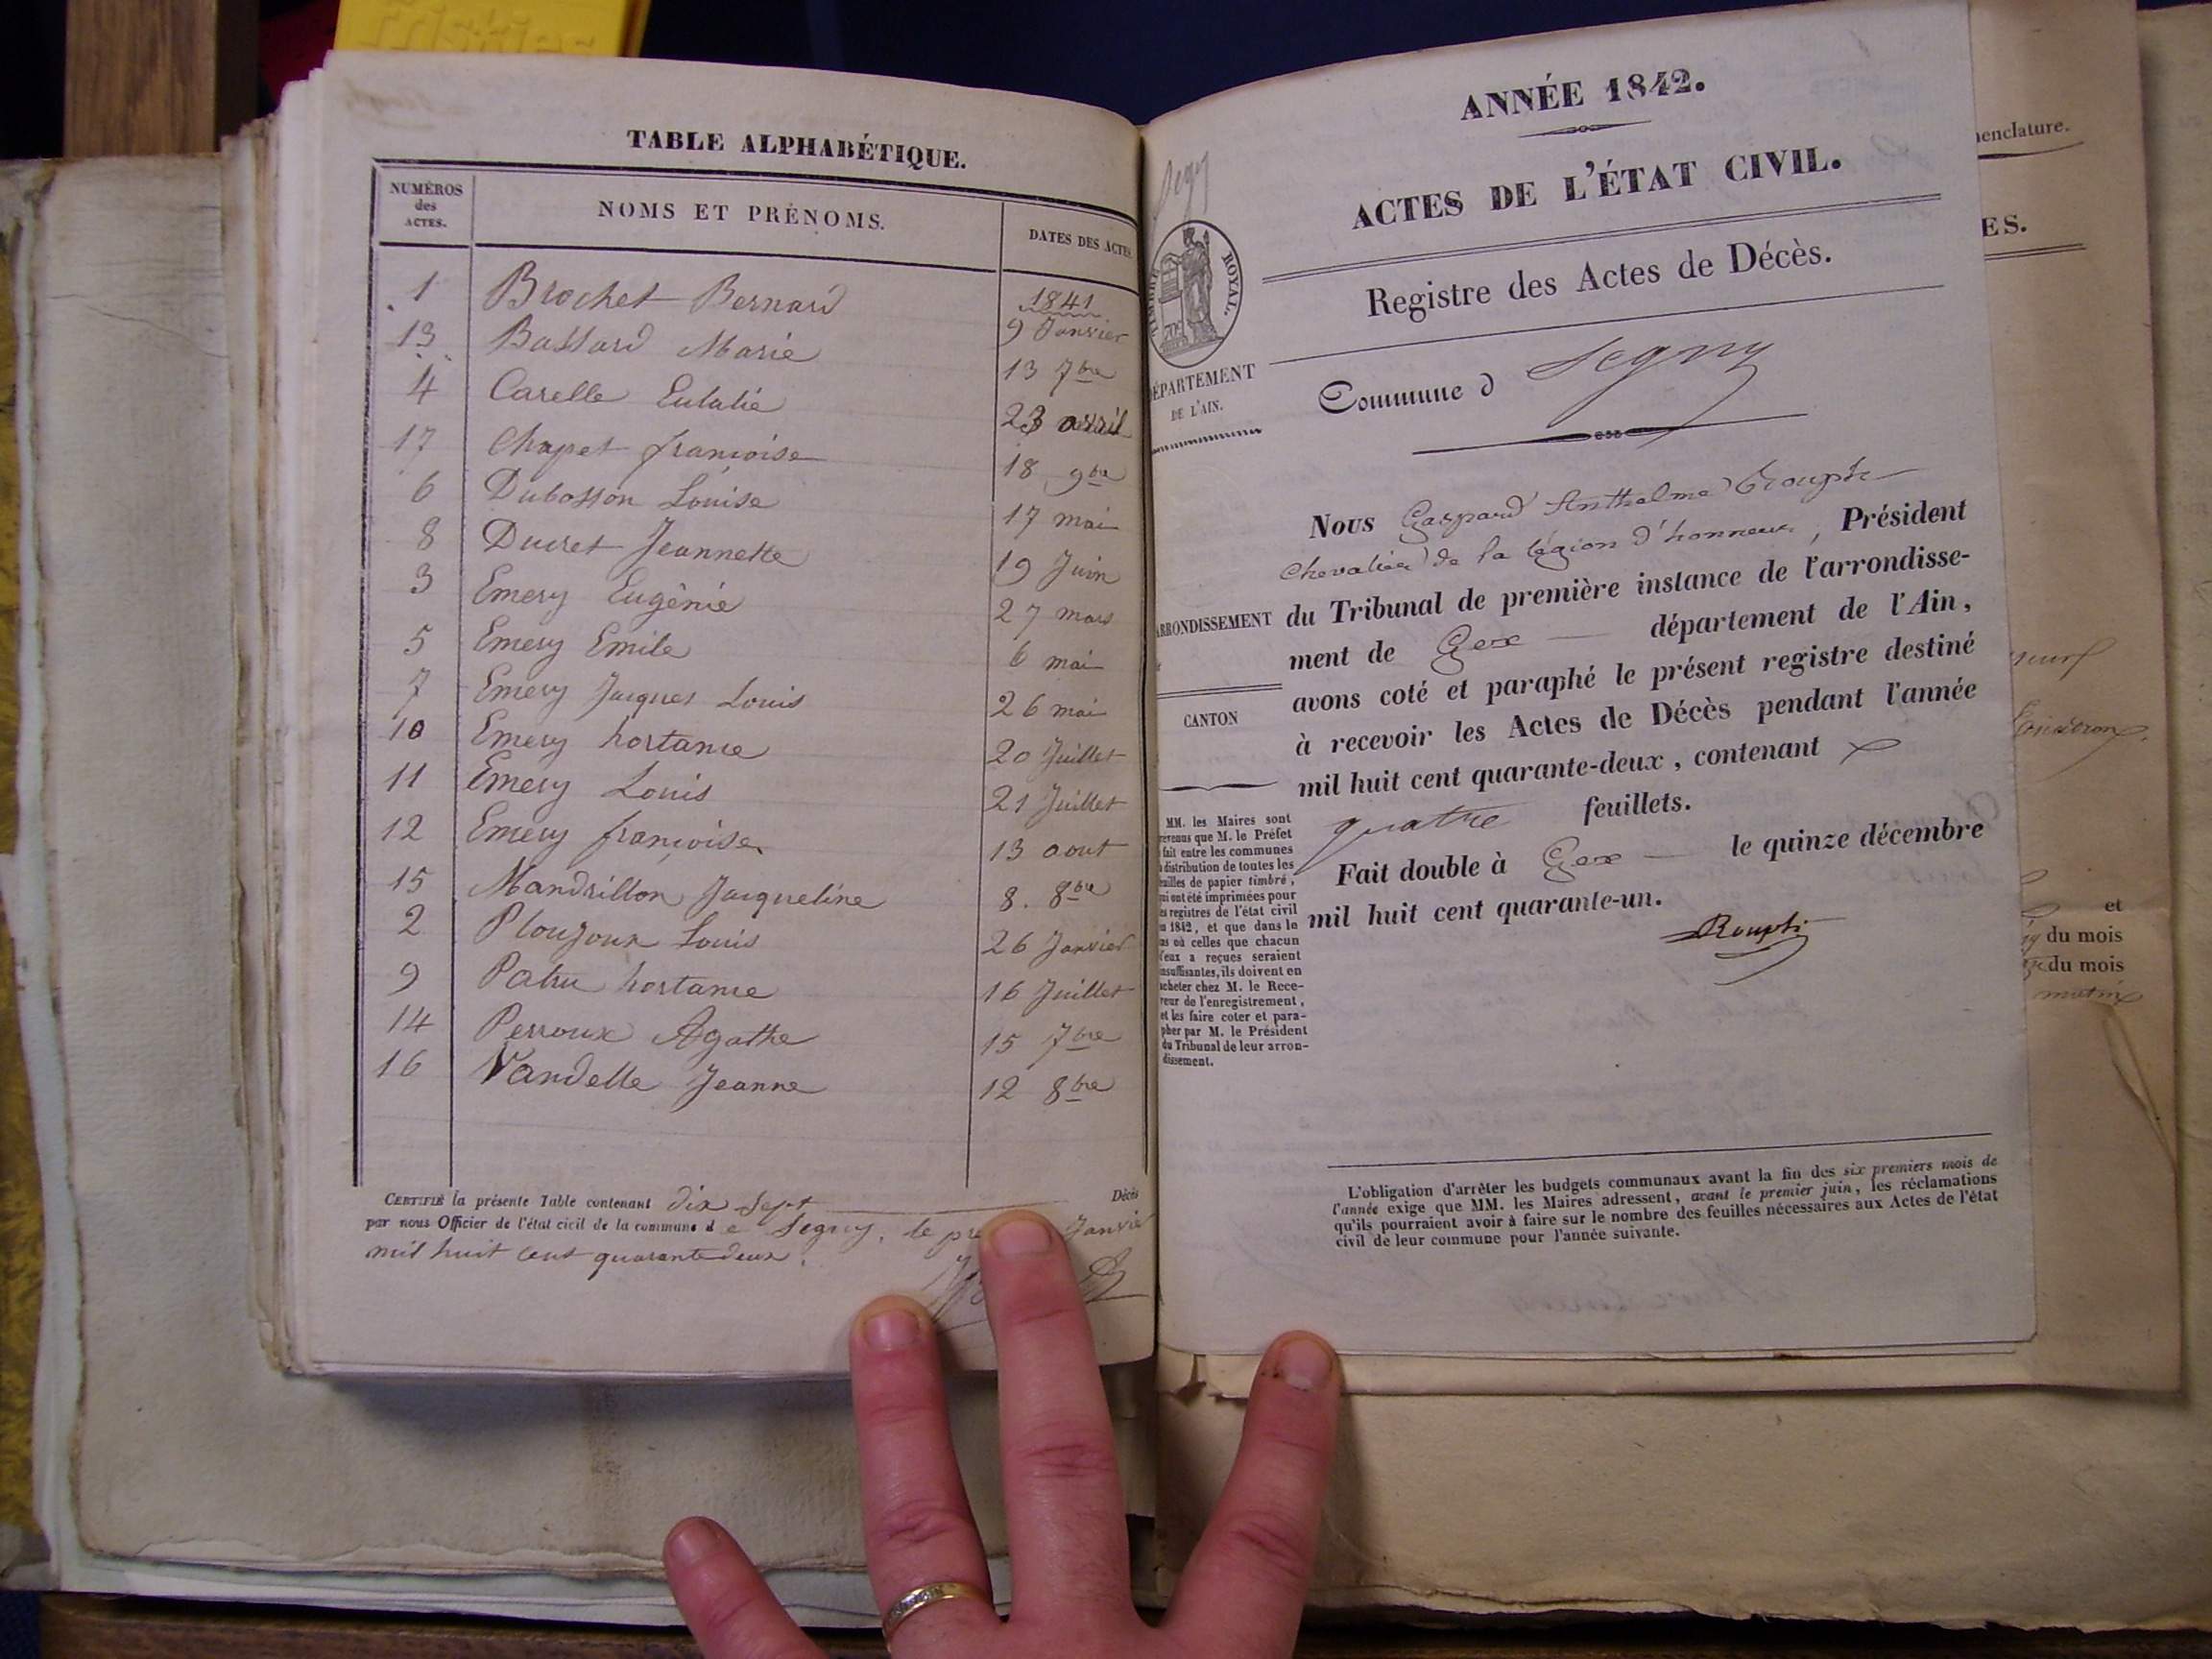 TABLE ALPHABÉTIQUE.
NUMÉROS des ACTES. NOMS ET PRÉNOMS. DATES DES ACTES
1841
1 Brochet Bernard 9 Janvier
13 Bassard Marie 13 7bre
4 Carelle Eulalie 23 avril
17 Chapet françoise 18 9bre
6 Dubosson Louise 17 mai
8 Ducret Jeannette 19 Juin
3 Emery Eugènie 27 mars
5 Emery Emile 6 mai
7 Emery Jacques Louis 26 mai
10 Emery hortance 20 Juillet
11 Emery Louis 21 Juillet
12 Emery françoise 13 aout
15 Mandrillon Jacqueline 8. 8bre
2 Ploujoux Louis 26 Janvier
9 Patru hortance 16 Juillet
14 Perroux Agathe 15 7bre
16 Vandelle Jeanne 12 8bre
CERTIFIÉ la présente Table contenant dix Sept Décès
par nous Officier de l'état civil de la commune de Segny, le pre Janvier
mil huit cent quarante deux.
Segny
TIMBRE ROYAL.
DÉPARTEMENT
DE L'AIN.
ARRONDISSEMENT
CANTON
MM. les Maires sont
prévenus que M. le Préfet
fait entre les communes
distribution de toutes les
feuilles de papier timbré,
qui ont été imprimées pour
les registres de l'état civil
1842, et que dans le
cas où celles que chacun
d'eux a reçues seraient
insuffisantes, ils doivent en
acheter chez M. le Rece-
veur de l'enregistrement,
et les faire coter et para-
pher par M. le Président
du Tribunal de leur arron-
dissement.
ANNÉE 1842.
ACTES DE L'ÉTAT CIVIL.
Registre des Actes de Décès.
Commune d Segny
Nous Gaspard Anthelme
Chevalier de la légion d'honneur, Président
du Tribunal de première instance de l'arrondisse-
ment de Gex département de l'Ain,
avons coté et paraphé le présent registre destiné
à recevoir les Actes de Décès pendant l'année
mil huit cent quarante-deux, contenant
quatre feuillets.
Fait double à Gex le quinze décembre
mil huit cent quarante-un.
L'obligation d'arrêter les budgets communaux avant la fin des six premiers mois de
l'année exige que MM. les Maires adressent, avant le premier juin, les réclamations
qu'ils pourraient avoir à faire sur le nombre des feuilles nécessaires aux Actes de l'état
civil de leur commune pour l'année suivante.
enclature.
ES.
et
du mois
du mois
matin